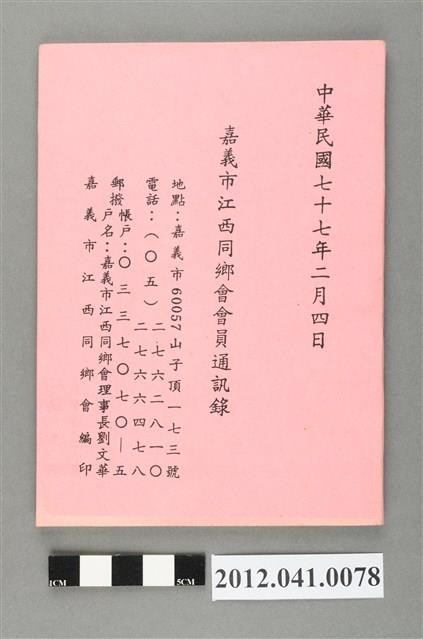 中華民國七十七年二月四日
嘉義市江西同鄉會會員通訊錄
地點：嘉義市60057山子頂一七三號
電話：（○五）二七六二八一○
二七六六四七八
郵撥帳戶：○三三七○七○—五
戶名：嘉義市江西同鄉會理事長劉文華
嘉義市江西同鄉會編印
1CM
5CM
2012.041.0078